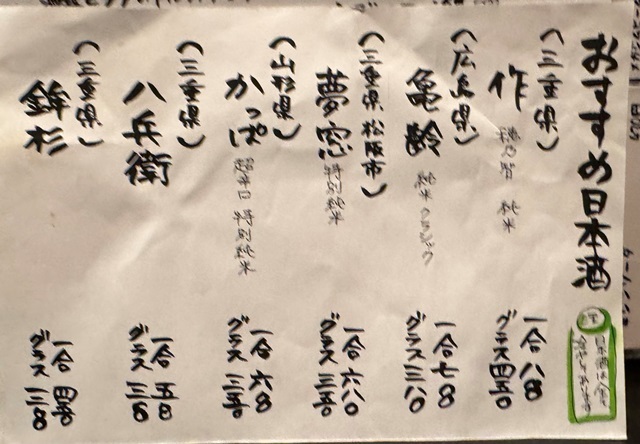 おすすめ日本酒
(三重県)
作 穂乃智 純米
一合 八〇〇
グラス 四五〇
(広島県)
亀齢 純米 クラシック
一合 七〇〇
グラス 三八〇
(三重県 松阪市)
夢窓 特別純米
一合 六八〇
グラス 三五〇
(山形県)
かっぱ 超辛口 特別純米
一合 六〇〇
グラス 三五〇
(三重県)
八兵衛
一合 五〇〇
グラス
(三重県)
鉾杉
一合 四五〇
グラス